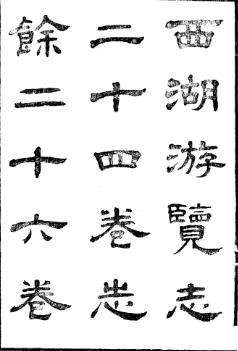 西湖游覽志
二十四卷志
餘二十六卷